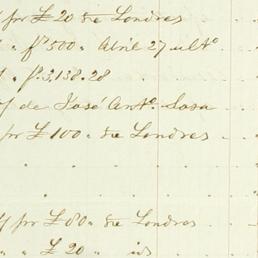 pr £ 20 s/e Londres
" f. 7500 " Abril 27 ulto
" f. 3,138.28
de José Anto. Sosa
pr £ 100 " s/e Londres
" "
pr £ 80 " s/e Londres
" " £ 20 " ids